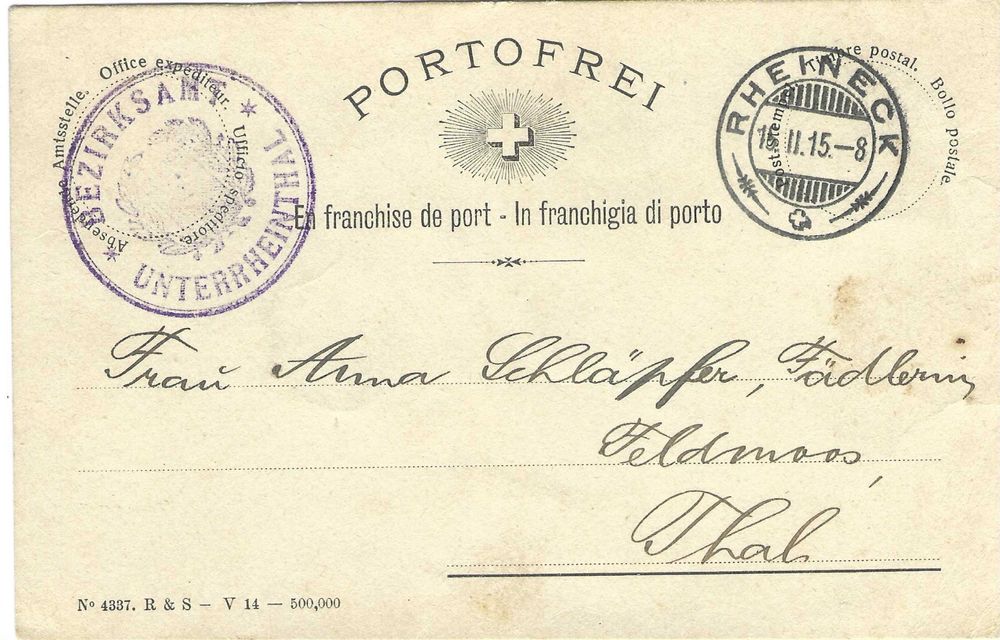 PORTOFREI
Absendende Amtsstelle. Office expéditeur. Ufficio speditore
* BEZIRKSAMT * UNTERRHEINTHAL
Timbre postal. Bollo postale Poststempel
RHEINECK
II.15.–8
En franchise de port - In franchigia di porto
Frau Anna Schläpfer, Fädlerin,
Feldmoos,
Thal
Nº 4337. R & S – V 14 — 500,000